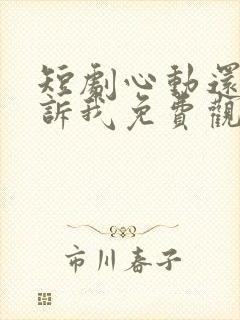 短劇心動還
訴我免費觀
市川春子